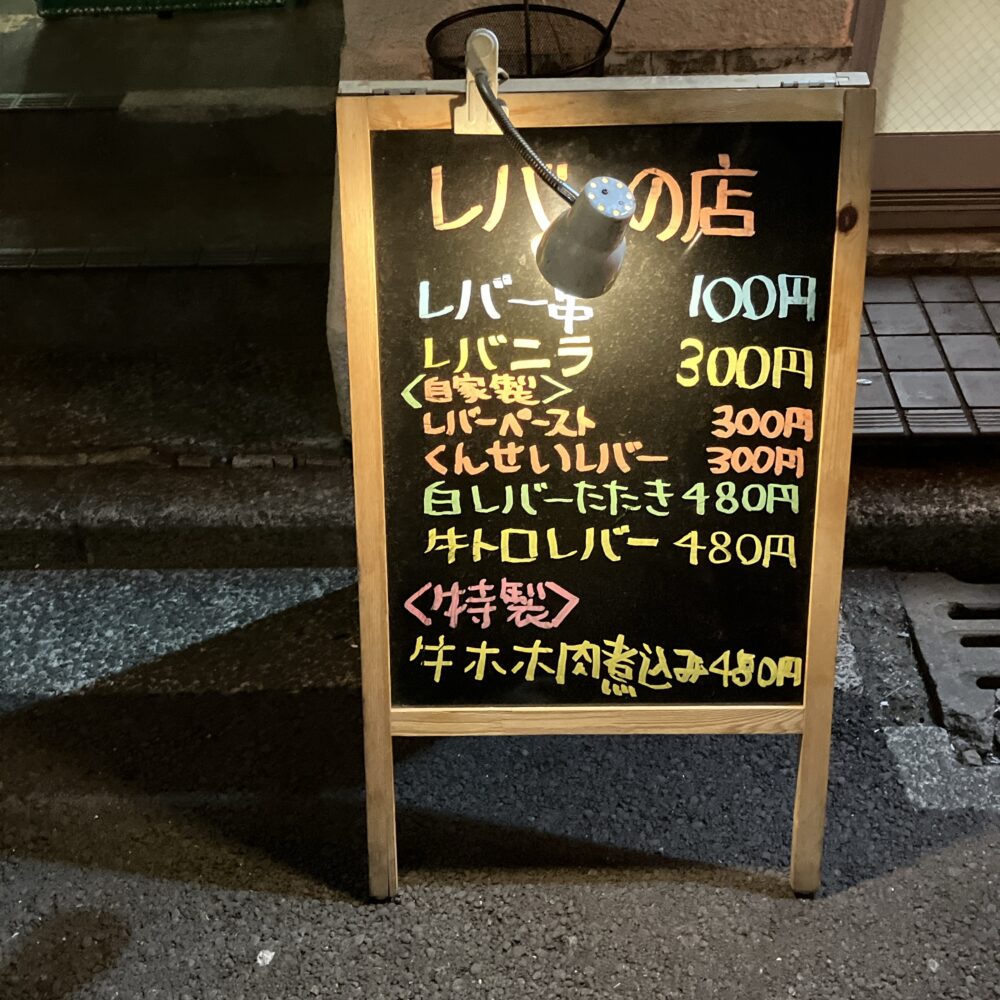 レバーの店
レバー串 100円
レバニラ 300円
<自家製>
レバーペースト 300円
くんせいレバー 300円
白レバーたたき 480円
牛トロレバー 480円
<特製>
牛ホホ肉煮込み 450円